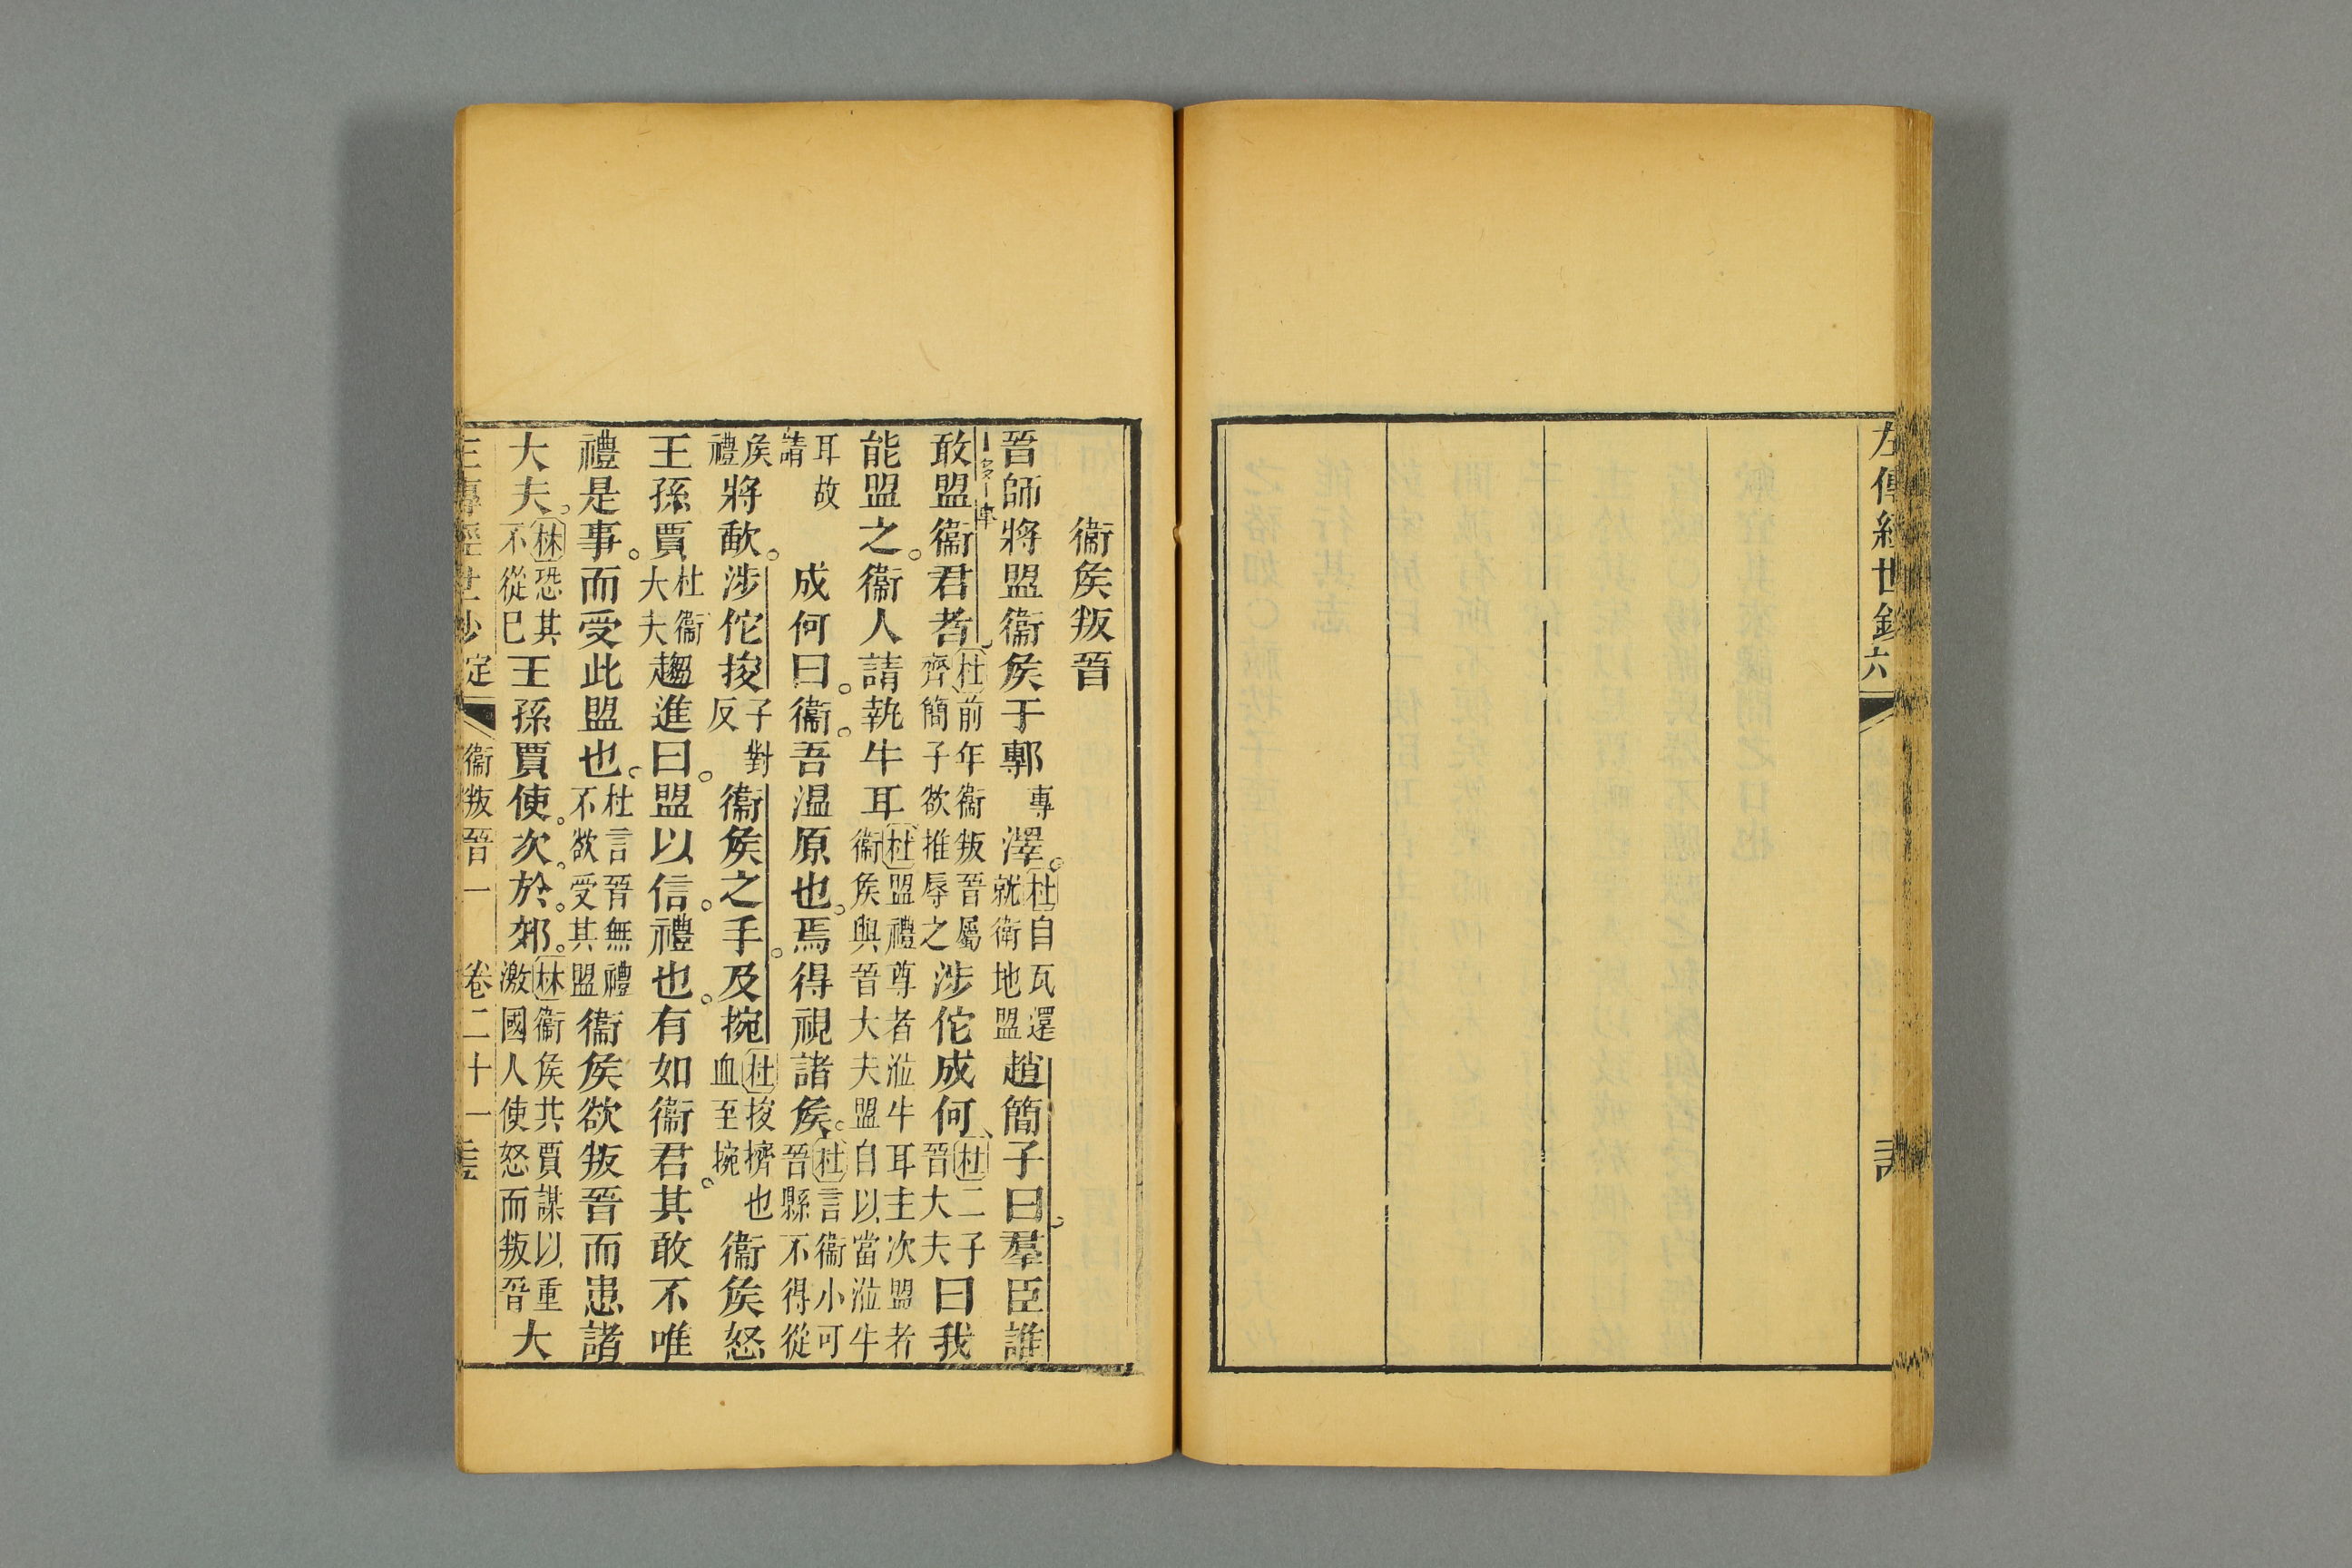 左傳經世鈔 六
衞矦叛晉
晉師將盟衞矦于鄟專澤。杜自瓦還就衛地盟趙簡子曰羣臣誰
敢盟衞君者杜前年衞叛晉屬齊簡子欲推辱之涉佗成何杜二子晉大夫曰我
能盟之。衞人請執牛耳杜盟禮尊者涖牛耳主次盟者衞矦與晉大夫盟自以當涖牛
耳故請成何曰。衞。吾溫原也。焉得視諸矦。杜言衞小可晉縣不得從矦
禮將歃。涉佗捘子對反衞矦之手。及捥杜捘擠也血至捥衞矦怒
王孫賈杜衞大夫趨進曰。盟以信。禮也。有如衞君。其敢不唯
禮是事。而受此盟也。杜言晉無禮不欲受其盟衞矦欲叛晉而患諸
大夫。林恐其不從巳王孫賈使。次。於。郊。林衞矦共賈謀以激國人使怒而叛晉大
左傳經世鈔 定 衞叛晉一 卷二十一